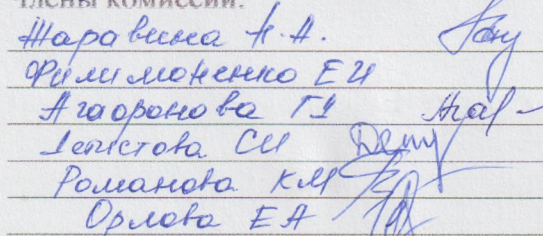 Члены комиссии:
Жаравина Н.А.
Филимоненко ЕИ
Агаронова
СИ
Романова КМ
Орлова ЕА